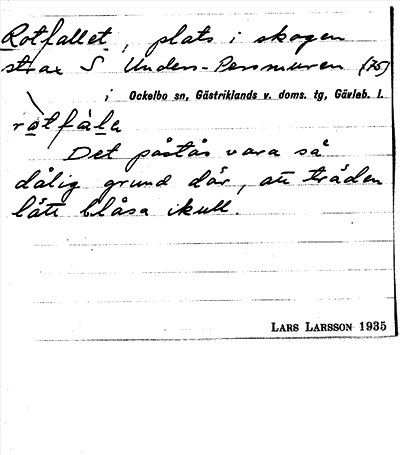 Rotfallet, plats i skogen
strax S Unders-Persmuren (75)
i Ockelbo sn, Gästriklands v. doms. tg, Gävleb. l.
ròtfàla
Det påstås vara så
dålig grund där, att träden
lätt blåsa ikull.
LARS LARSSON 1935